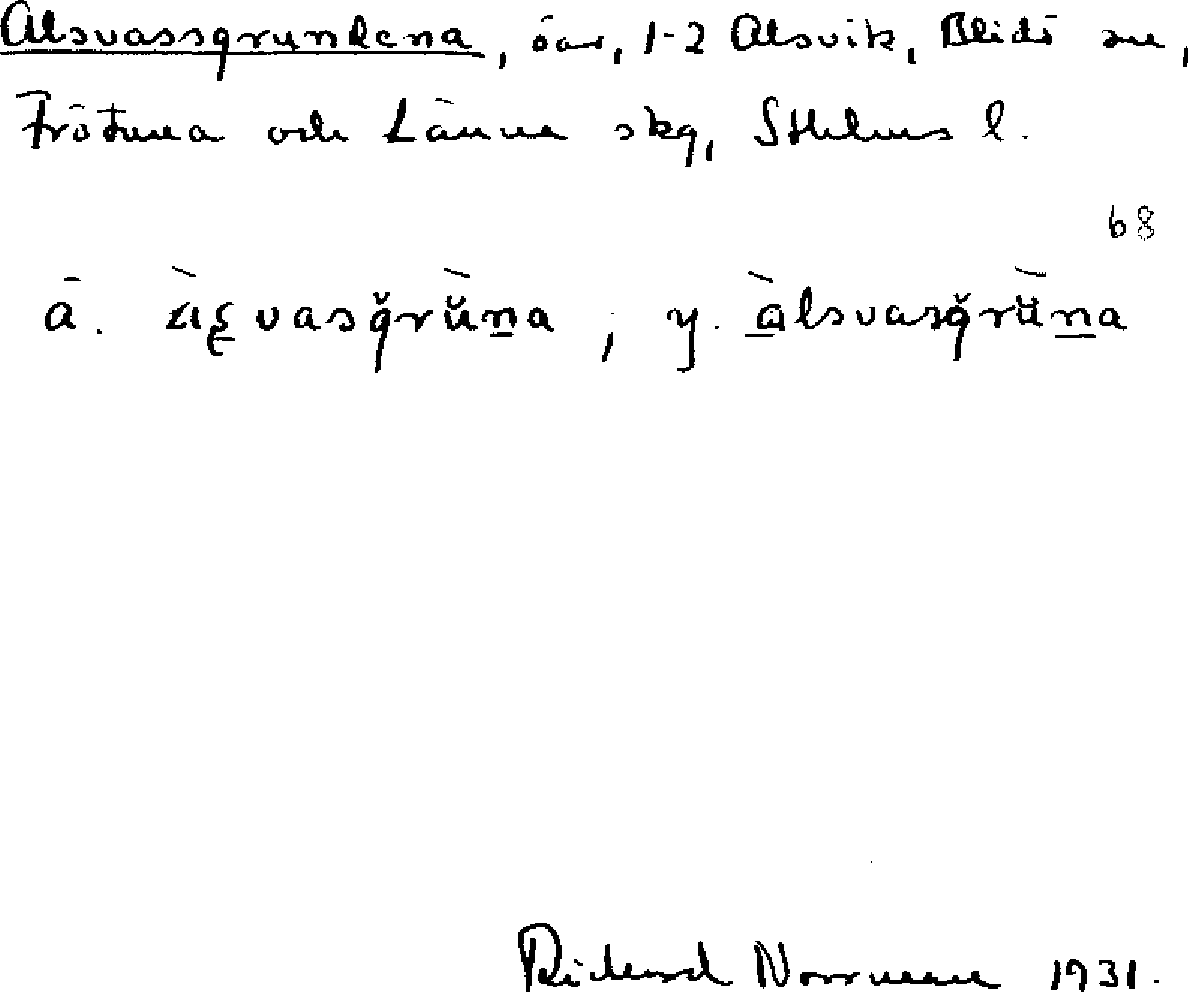 Alsvassgrundena, öar, 1-2 Alsvik, Blidö sn,
Frötuna och Länna skg, Sthlms l.
68
ä. vasgrŭna ; y. àlsvasgrŭna
Rickard Norrman 1931.